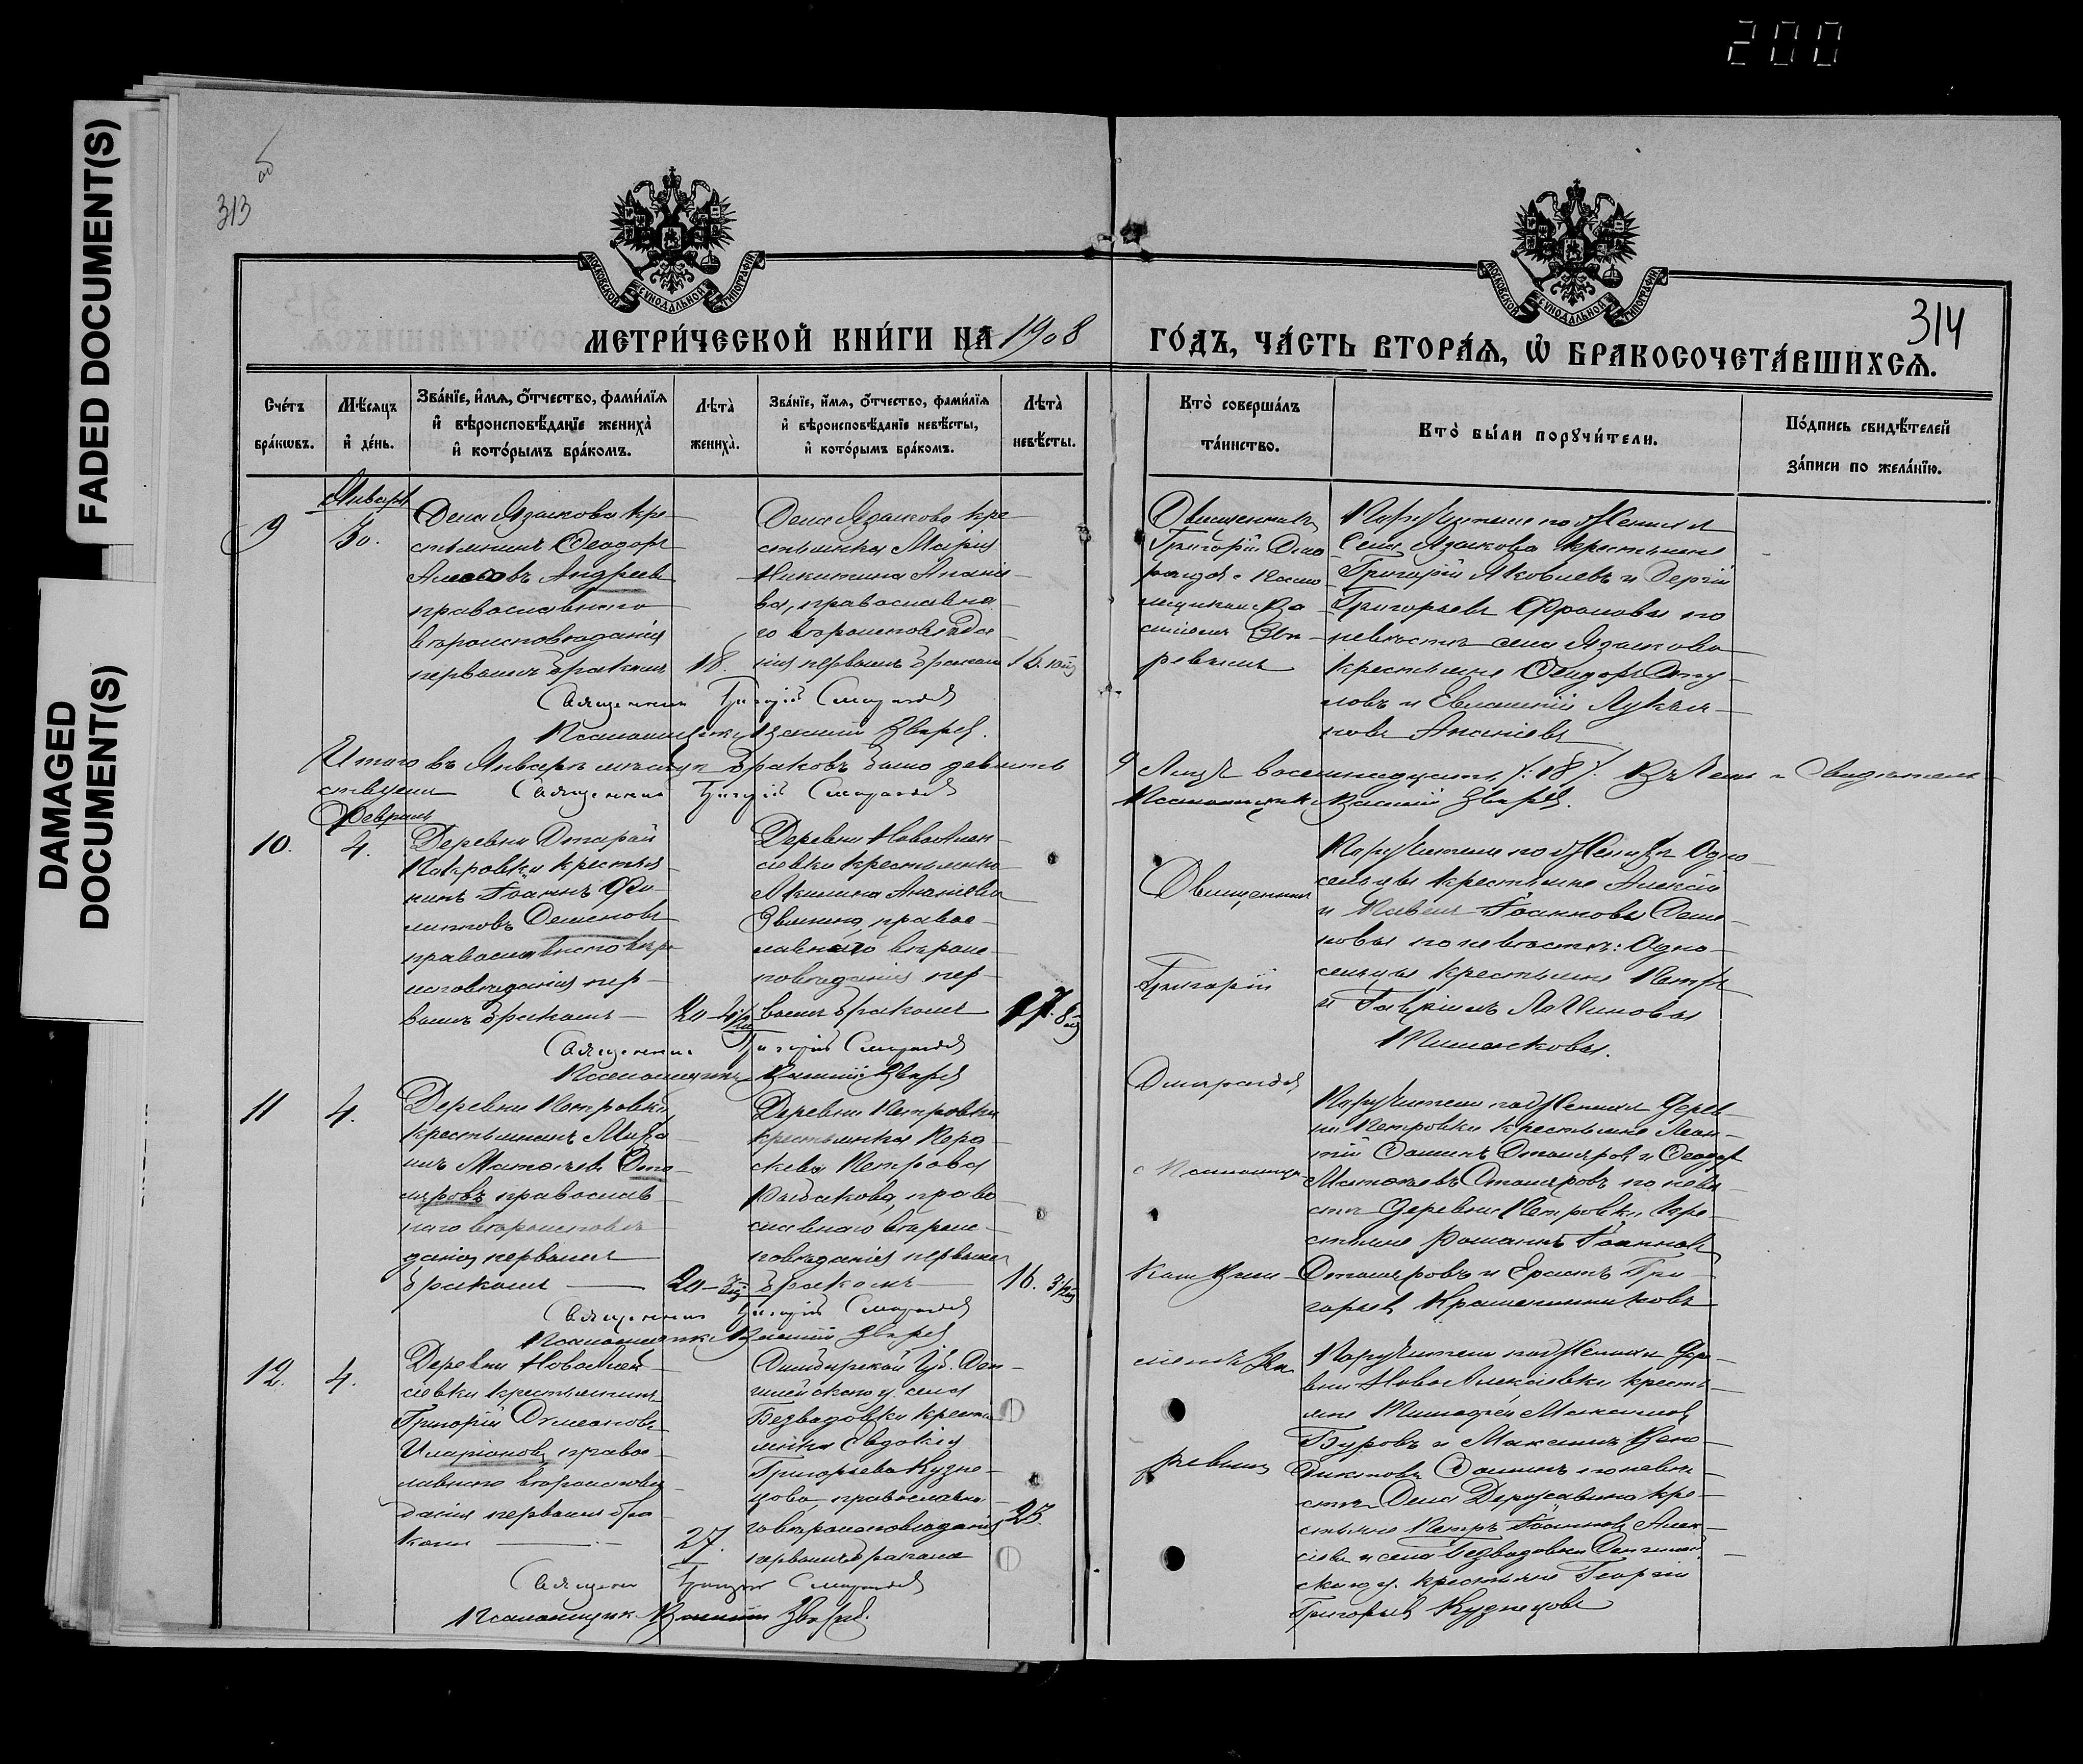 200
FADED DOCUMENT(S)
DAMAGED
DOCUMENT(S)
313
об
314
МОСКОВСКОЙ СѴНОДАЛЬНОЙ ТИПОГРАФІИ
МОСКОВСКОЙ СѴНОДАЛЬНОЙ ТИПОГРАФІИ
МЕТРИ́ЧЕСКОЙ КНИ́ГИ НА 1908
ГО́ДЪ, ЧА́СТЬ ВТОРА́Ѧ, Ѡ҆ БРАКОСОЧЕТА́ВШИХСѦ.
Сче́тъ
бра́кѡвъ.
Мѣ́сѧцъ
и҆ де́нь.
Зва́нїе, и҆́мѧ, ѻ҆́тчество, фами́лїѧ
и҆ вѣроисповѣ́данїе жениха̀
и҆ кото́рымъ бра́комъ.
Лѣта̀
жениха̀.
Зва́нїе, и҆́мѧ, ѻ҆́тчество, фами́лїѧ
и҆ вѣроисповѣ́данїе невѣ́сты,
и҆ кото́рымъ бра́комъ.
Лѣта̀
невѣ́сты.
Кто̀ соверша́лъ
та́инство.
Кто̀ бы́ли порꙋчи́тели.
По́дпись свидѣ́телей
за́писи по жела́нїю.
Январь
9
30.
Села Языкова кре-
стьянинъ Ѳеодоръ
Андреев
православнаго
вѣроисповѣданія
первымъ бракомъ
18.
Села Языкова кре-
стьянка Марія
Никитина Анани-
ва, православна-
го вѣроисповѣда-
нія первымъ бракомъ
16.
Священникъ
Григорій Сма-
рагдов с псало-
мщикомъ Ва-
силіемъ Звѣ-
ревымъ
Поручители по женихѣ
Села Языкова крестьяне
Григорій Яковлевъ и Сергій
Григорьевъ Фроловы по
невѣстѣ села Языкова
крестьяне Ѳеодоръ
и Евлампій Лукья-
новъ Ананіевъ
Священникъ Григорій Смарагдов
Псаломщикъ Василій Звѣрев.
Итого въ Январѣ мѣсяцѣ браковъ было девять
9 Лицъ восемнадцать /:18:/. Въ чемъ и свидѣтель-
ствуемъ Священникъ Григорій Смарагдов
Псаломщикъ Василій Звѣрев.
Февраль
10.
4.
Деревни Старой
Покровки крестья-
нинъ Іоаннъ Фи-
липповъ Семеновъ
православнаго вѣро-
исповѣданія пер-
вымъ бракомъ
20
Деревни Новоалек-
сѣевки крестьянка
Акилина Ананіева
Звинина, правос-
лавнаго вѣроис-
повѣданія пер-
вымъ бракомъ
17.
Священникъ
Григорій
Смарагдов
с Псаломщи-
комъ Васи-
ліемъ Звѣ-
ревымъ
Поручители по женихѣ Одно-
сельцы крестьяне Алексій
и Павелъ Іоанновы Семе-
новы по невѣстѣ: Одно-
сельцы крестьяне Петръ
и Гавріилъ Логиновы
Священникъ Григорій Смарагдов
Псаломщикъ Василій Звѣрев
11
4.
Деревни Петровки
крестьянинъ Миха-
илъ Матвѣев Сто-
ляровъ православ-
наго вѣроисповѣ-
данія первымъ
бракомъ
20
Деревни Петровки
крестьянка Пара-
скева Петрова
Рыбакова, право-
славнаго вѣроис-
повѣданія первымъ
бракомъ
16.
Поручители по женихѣ дерев-
ни Петровки крестьяне Леон-
тій Столяров и Ѳеодор
Матвѣевъ Столяровъ по невѣ-
стѣ деревни Петровки кре-
стьяне Романъ Іоаннов
Столяровъ и Ерастъ Гри-
горьев Крашенинниковъ
Священникъ Григорій Смарагдов
Псаломщикъ Василій Звѣрев
12.
4.
Деревни Новоалек-
сѣевки крестьянинъ
Григорій Симеоновъ
Иларіонов, правос-
лавнаго вѣроисповѣ-
данія первымъ бра-
комъ
27.
Симбирской губ. Сен-
гилейскаго у. села
Безводовки кресть-
янка Евдокія
Григорьева Кузне-
цова православна-
го вѣроисповѣданія
первымъ бракомъ
25.
Поручители по женихѣ Дере-
вни Новоалексѣевки кресть-
яне Тимофей Максимов
Буровъ и Максимъ Вене-
диктовъ по невѣ-
стѣ Села Державина кре-
стьяне Петръ Іоаннов Алек-
сѣевъ и села Безводовки Сенгилей-
скаго у. крестьяне Георгій
Григорьев Кузнецовъ
Священникъ Григорій Смарагдов
Псаломщикъ Василій Звѣрев.